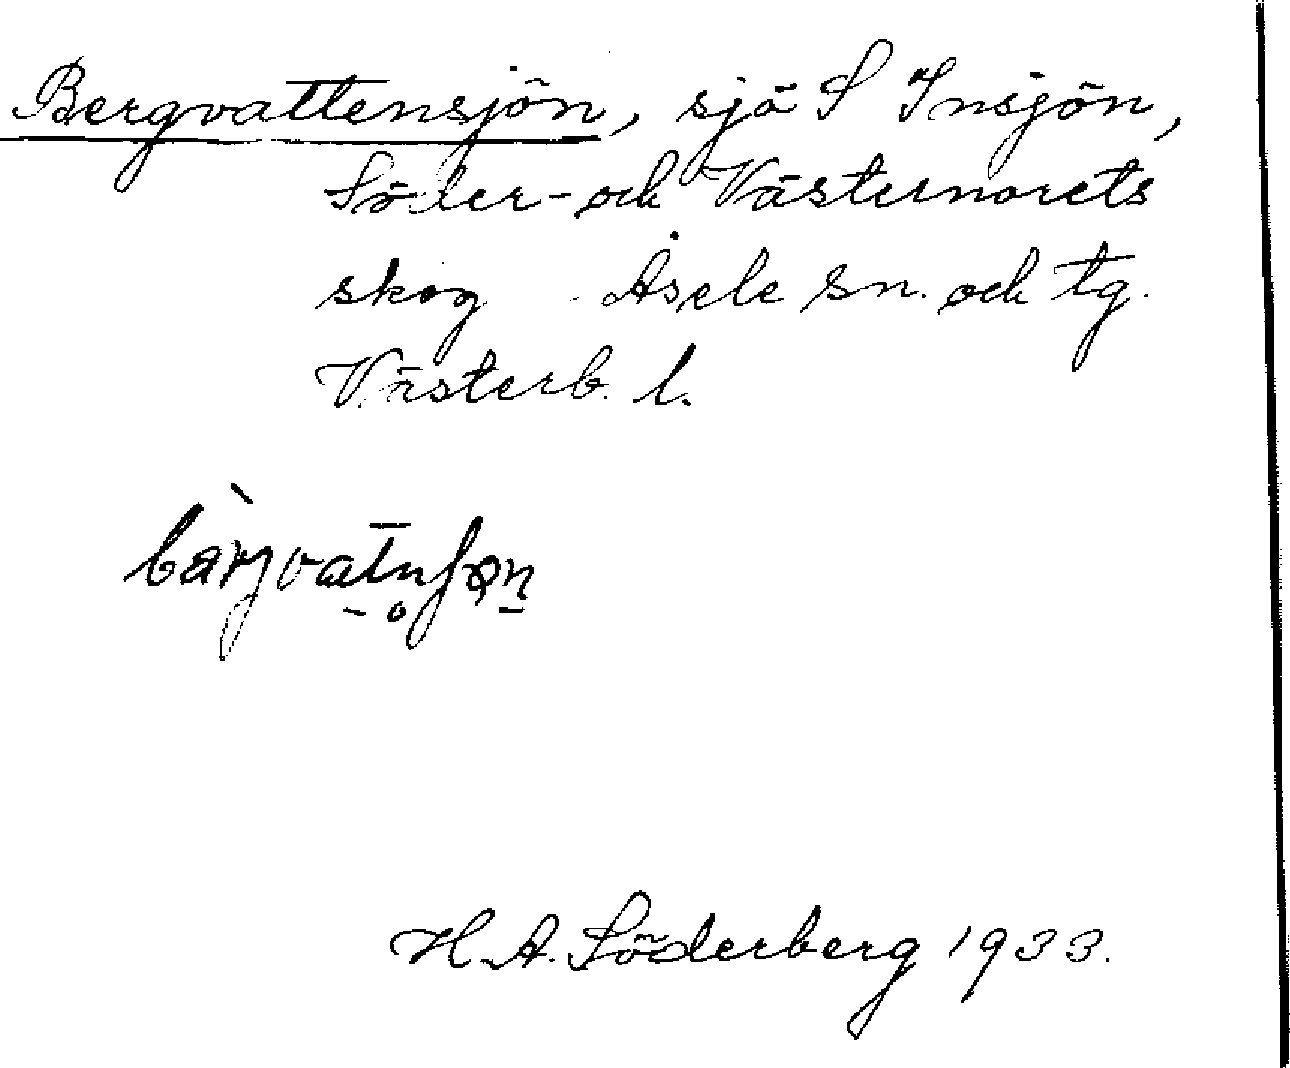 Bergvattensjön, sjö S Insjön,
Söder- och Västernorets
skog Åsele sn. och tg.
Västerb. l.
H.A. Söderberg 1933.